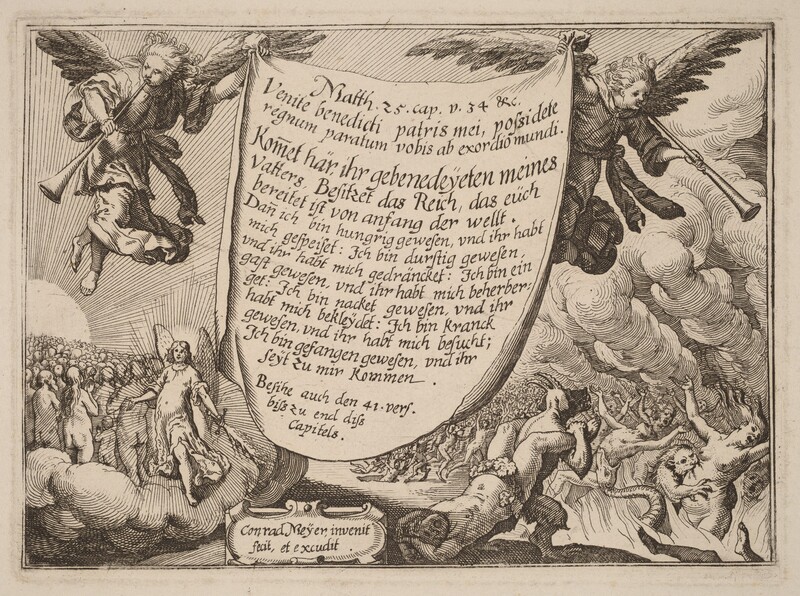 Matth. 25. cap. v. 34 &c.
Venite benedicti patris mei, poßidete
regnum paratum vobis ab exordio mundi.
Kom̃et här, ihr gebenedeÿeten meines
Vatters. Besitzet das Reich, das eüch
bereitet ist von anfang der wellt.
Dañ ich bin hungrig gewesen, vnd ihr habt
mich gespeiset: Ich bin durstig gewesen,
vnd ihr habt mich gedräncket: Ich bin ein
gast gewesen, vnd ihr habt mich beherber-
get: Ich bin nacket gewesen, vnd ihr
habt mich bekleÿdet: Ich bin Kranck
gewesen, vnd ihr habt mich besucht;
Ich bin gefangen gewesen, vnd ihr
seÿt zu mir Kommen.
Besihe auch den 41. vers.
biss zu end diss
Capitels.
Conrad Meÿer, invenit
fecit, et excudit.